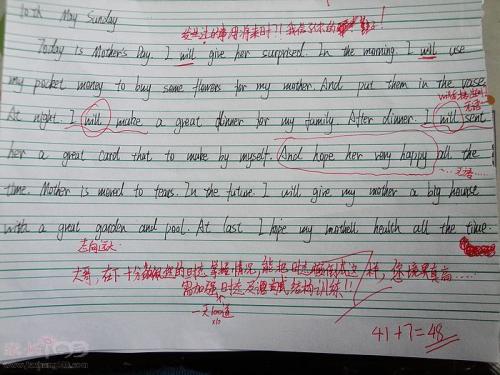 10th May Sunday
发生过的事用将来时?! 我信了你的!
Today is Mother's Day. I will give her surprised. In the morning. I will use
my pocket money to buy some flowers for my mother. And put them in the vase.
At night. I will make a great dinner for my family. After dinner. I will sent
her a great card that to make by myself. And hope her very happy all the
time. Mother is moved to tears. In the future. I will give my mother a big hourse
with a great garden and pool. At last I hope my mothell health all the time.
走向远大
大哥,在下十分佩服您的时态掌握情况,能把时态倾倒成这样,您境界真高……
需加强时态及语言式结构训练!!
一天100道
41+7=48